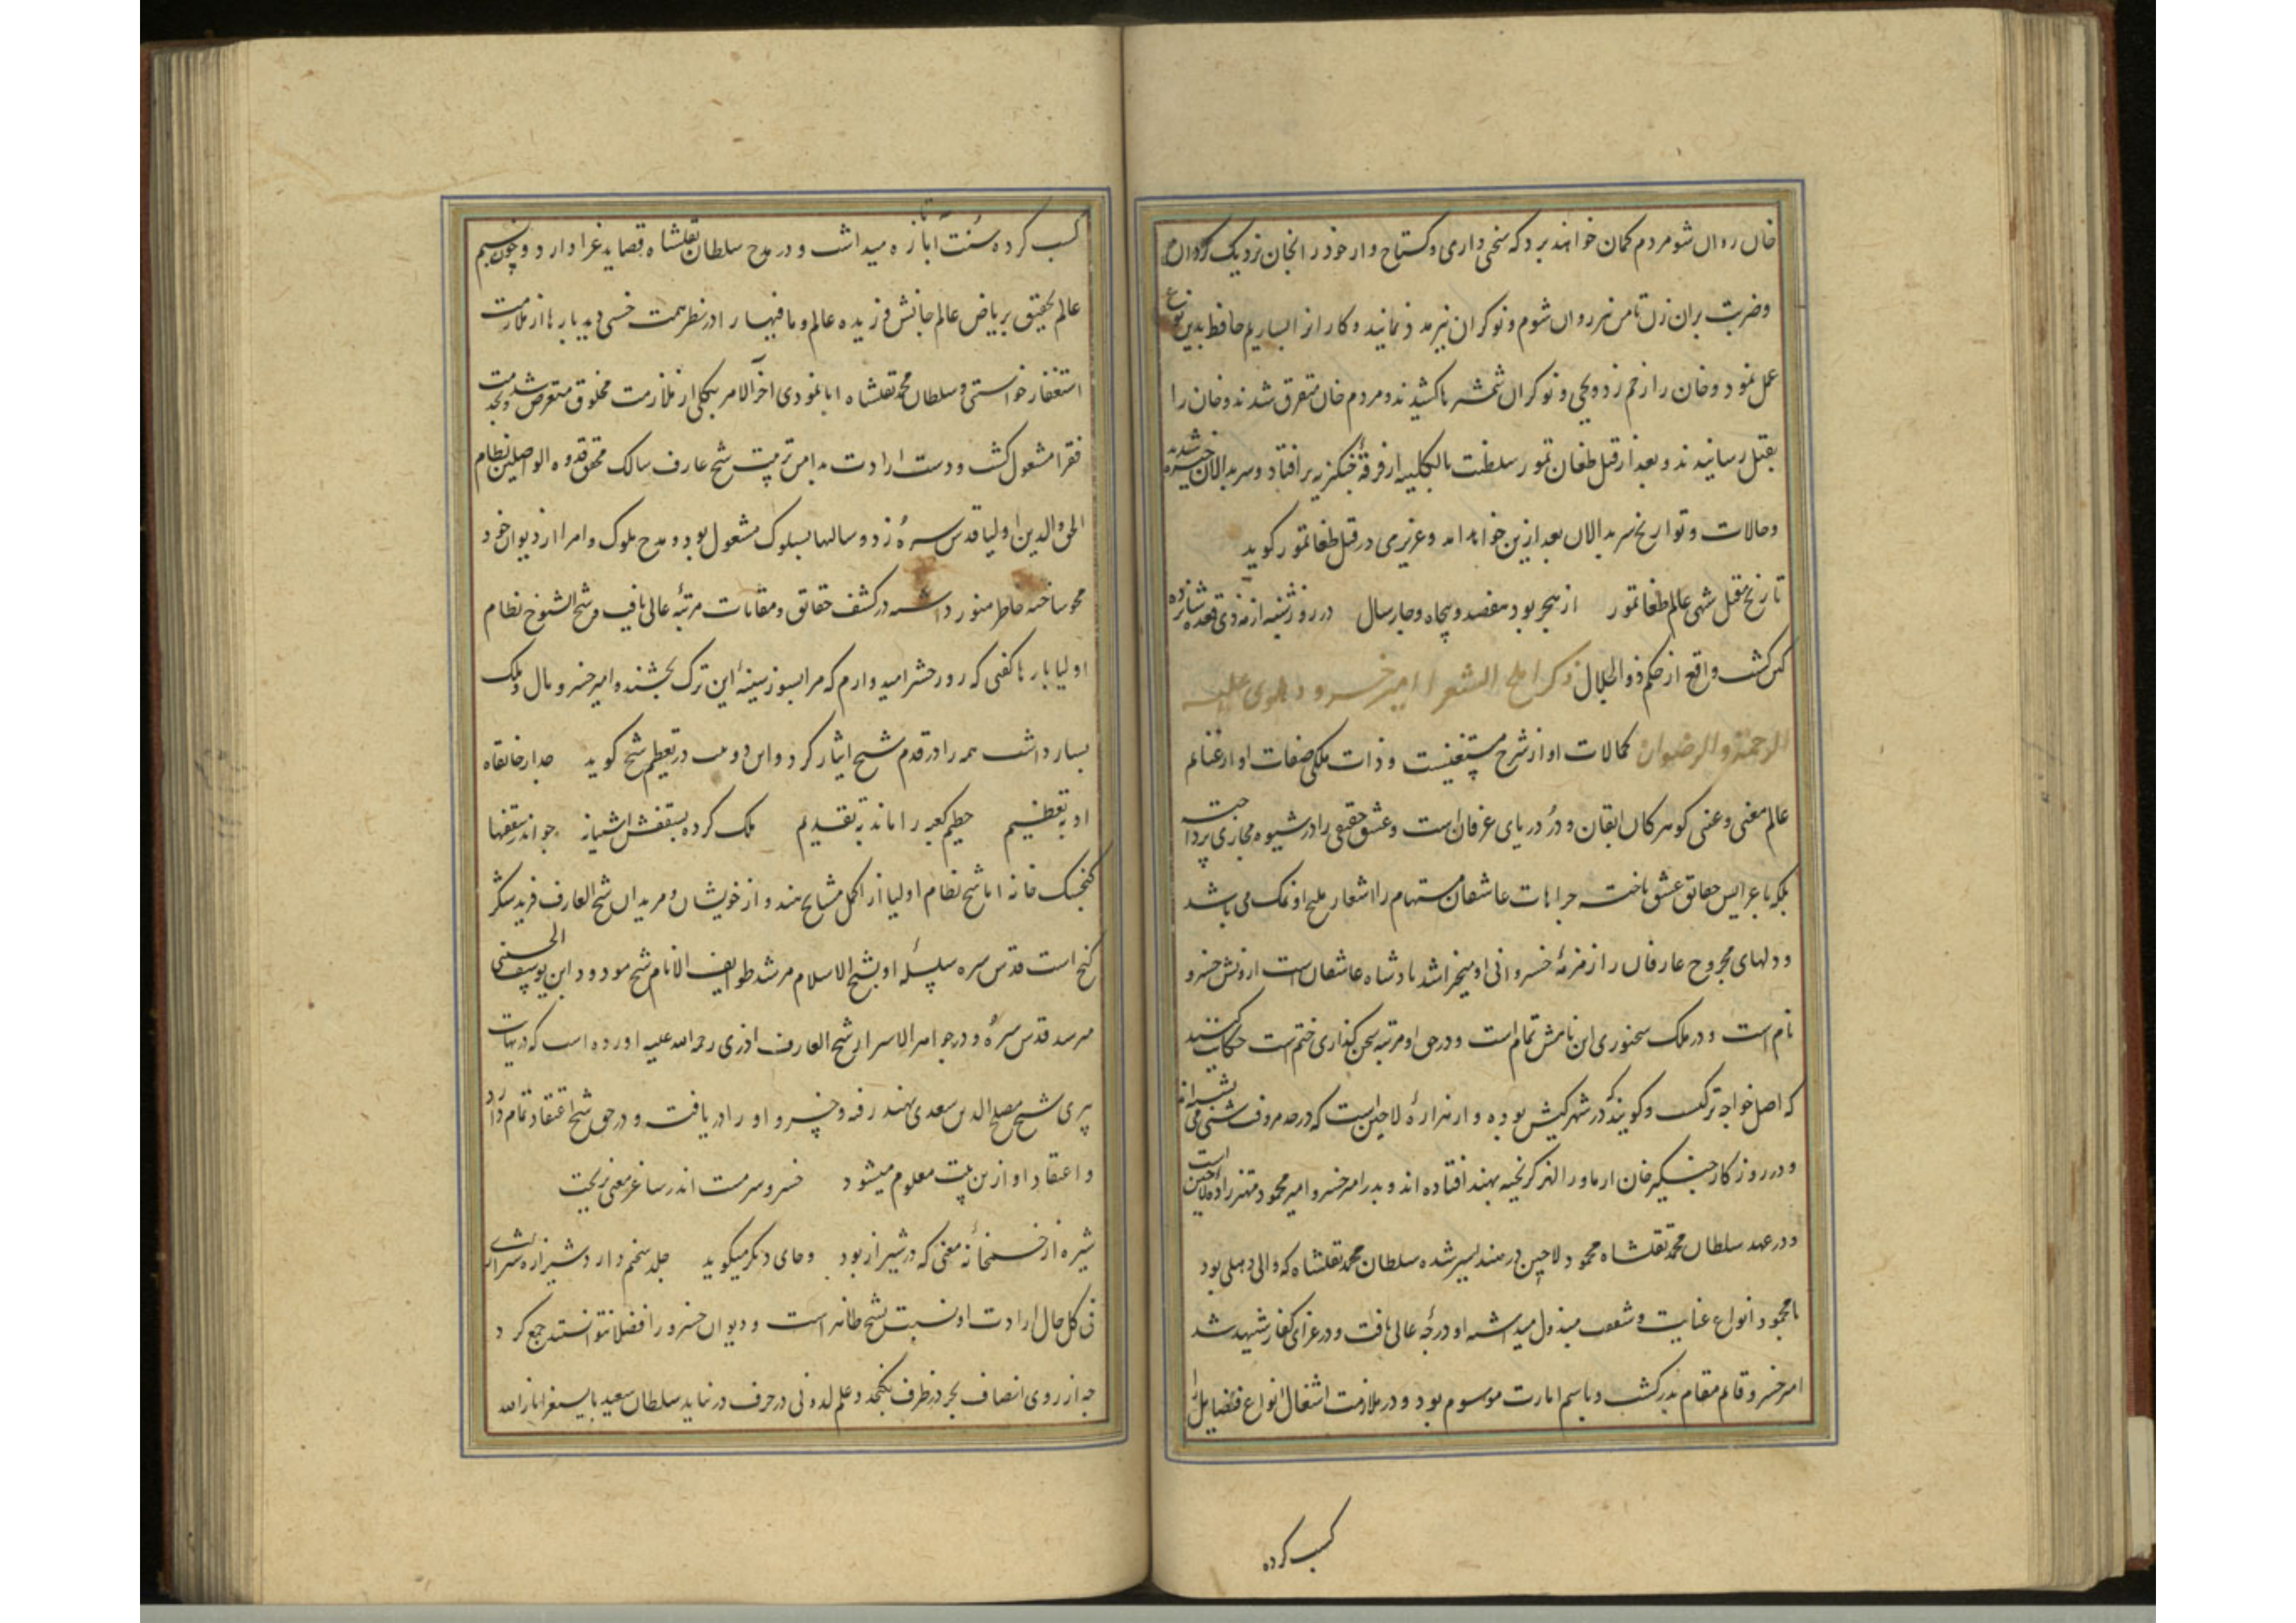 خان روان شو مردم کمان خواهند برد که سخنی داری و کستاخ وار خود را بخان نزدیک کردان
و ضربت بران زن تا من نیز روان شوم و نوکران نیز مدد نمایند و کار او را بسازیم حافظ بدین نوع
عمل نمود و خان را زخم زد و یحیی و نوکران شمشیرها کشیدند و مردم خان متفرق شدند و خان را
بقتل رسانیدند و بعد از قتل طغان تمور سلطنت بالکلیه از فرقهٔ چنکزیه بر افتاد و سربدالان خیره شدند
و حالات و تواریخ سربدالان بعد ازین خواهد امد و عزیزی در قتل طغاتمور کوید
تاریخ مقتل شه عالم طغاتمور از هجر بود هفصد و پنجاه و چار سال در روز شنبه از مه ذی قعده شانزده
کین کشت واقع از حکم ذوالجلال ذکر املح الشعرا امیر خسرو دهلوی علیه
الرحمة و الرضوان کمالات او از شرح مستغنیست و ذات ملکی صفات او از غنایم
عالم معنی و غنی کوهر کان ایقان و درّ دریای عرفان است و عشق حقیقی را در شیوه مجازی پرداخته
بلکه با عرایس حقایق عشق باخته جراحات عاشقان مستهام را اشعار ملیح او نمک می باشد
و دلهای مجروح عارفان را زمزمهٔ خسروانی او میخراشد پادشاه عاشقان است ازونش خسرو
نام است و در ملک سخنوری این نامش تمام است و در حق او مرتبه سخن کذاری ختم است حکایت کنند
که اصل خواجه ترکست و کویند که در شهر کیش بوده و از هزارهٔ لاچین است که در حد
و در روزکار چنکیز خان از ماوراالنهر کریخته بهند افتاده اند و پدر امیر خسرو امیر محمود مهتر زاده لاچین است
و در عهد سلطان محمد تغلشاه محمود لاچین در هند امیر شده سلطان محمد تغلشاه که والی دهلی بود
با محمود انواع عنایت و شفقت مبذول میداشته او درجهٔ عالی یافت و در غزای کفار شهید شد
امیر خسرو قایم مقام پدر کشت و باسم امارت موسوم بود و در ملازمت اشغال انواع فضایل را
کسب کرده
کسب کرده سنت آبا تازه میداشت و در مدح سلطان تغلشاه قصاید غرا دارد و چون نسیم
عالم تحقیق بر ریاض عالم جانش وزیده عالم و ما فیها را در نظر همت خسی دید بارها از ملازمت
استعفار خواستی و سلطان محمد تغلشاه ابا نمودی آخرالامر بیکلی از ملازمت مخلوق متعرض شد و بخدمت
فقرا مشغول کشت و دست ارادت بدامن تربیت شیخ عارف سالک محقق قدوه الواصلین نظام
الحق والدین اولیا قدس سره زد و سالها بسلوک مشغول بود و مدح ملوک و امرا از دیوان خود
محو ساخته خاطر منور داشته در کشف حقایق و مقامات مرتبهٔ عالی یافت و شیخ الشیوخ نظام
اولیا بارها کفتی که روز حشر امیدوارم که مرا بسوز سینهٔ این ترک بخشند و امیر خسرو مال و ملک
بسیار داشت همه را در قدم شیخ ایثار کرد و این دو بیت در تعظیم شیخ کوید جدار خانقاه
او به تعظیم حطیم کعبه را ماند به تقدیم ملک کرده بسقفش اشیانه چو اندر سقفها
کنجشک خانه اما شیخ نظام اولیا از اکمل مشایخ هند و از خویشان و مریدان شیخ العارف فرید شکر
کنج است قدس سره سلسلهٔ او بشیخ الاسلام مرشد طوایف الانام شیخ مودود ابن یوسف الحسنی
میرسد قدس سرّه و در جواهر الاسرار شیخ العارف اذری رحمه الله علیه اورده است که در نهایت
پیری شیخ مصلح الدین سعدی بهند رفته و خسرو او را دریافت و در حق شیخ اعتقاد تمام دارد
و اعتقاد او ازین بیت معلوم میشود خسرو سرمست اندر ساغر معنی بریخت
شیره از خمخانهٔ معنی که در شیراز بود و جای دیکر میکوید جلد سخنم دارد شیرازه شیرازی
فی کل حال ارادت او نسبت بشیخ ظاهر است و دیوان خسرو را فضلا نتوانستند جمع کرد
چه از روی انصاف بحر در ظرف نکنجد و علم لدونی در حرف درنیاید سلطان سعید بایسنغر انار الله